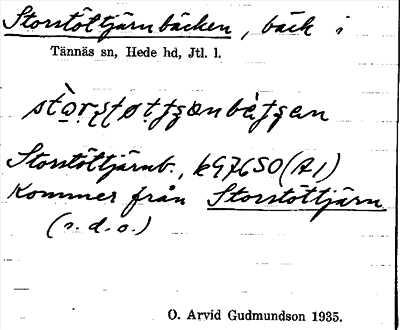 Storstöttjärnbäcken, bäck i
Tännäs sn, Hede hd, Jtl. l.
Storstöttjärnb., k976SO (A1)
Kommer från Storstöttjärn
(s.d.o.)
O. Arvid Gudmundson 1935.